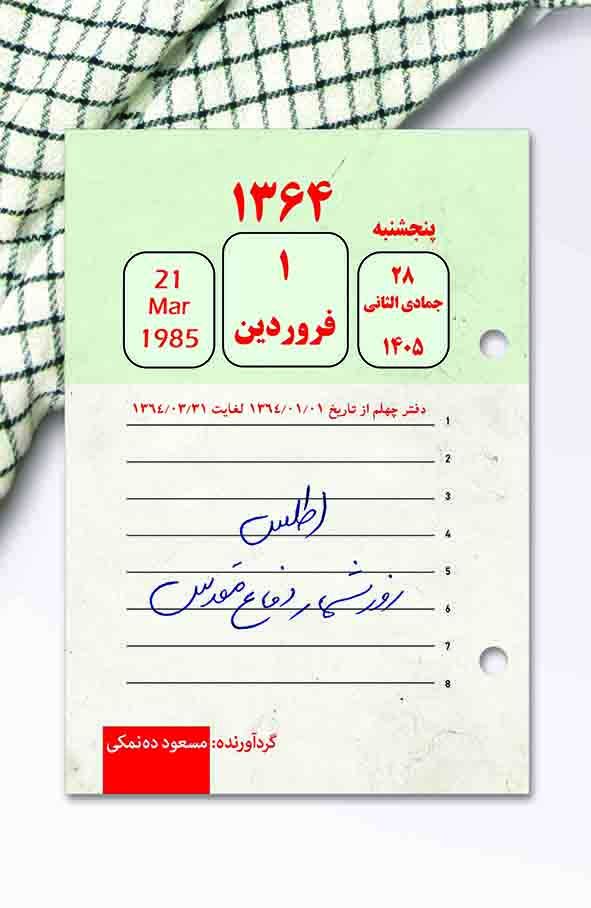 ۱۳۶۴
پنجشنبه
۲۸
جمادی الثانی
۱۴۰۵
۱
فروردین
21
Mar
1985
دفتر چهلم از تاریخ ۱۳۶۴/۰۱/۰۱ لغایت ۱۳۶۴/۰۳/۳۱
1
2
3
اطلس
4
5
روزشمار دفاع مقدس
6
7
8
گردآورنده: مسعود ده‌نمکی